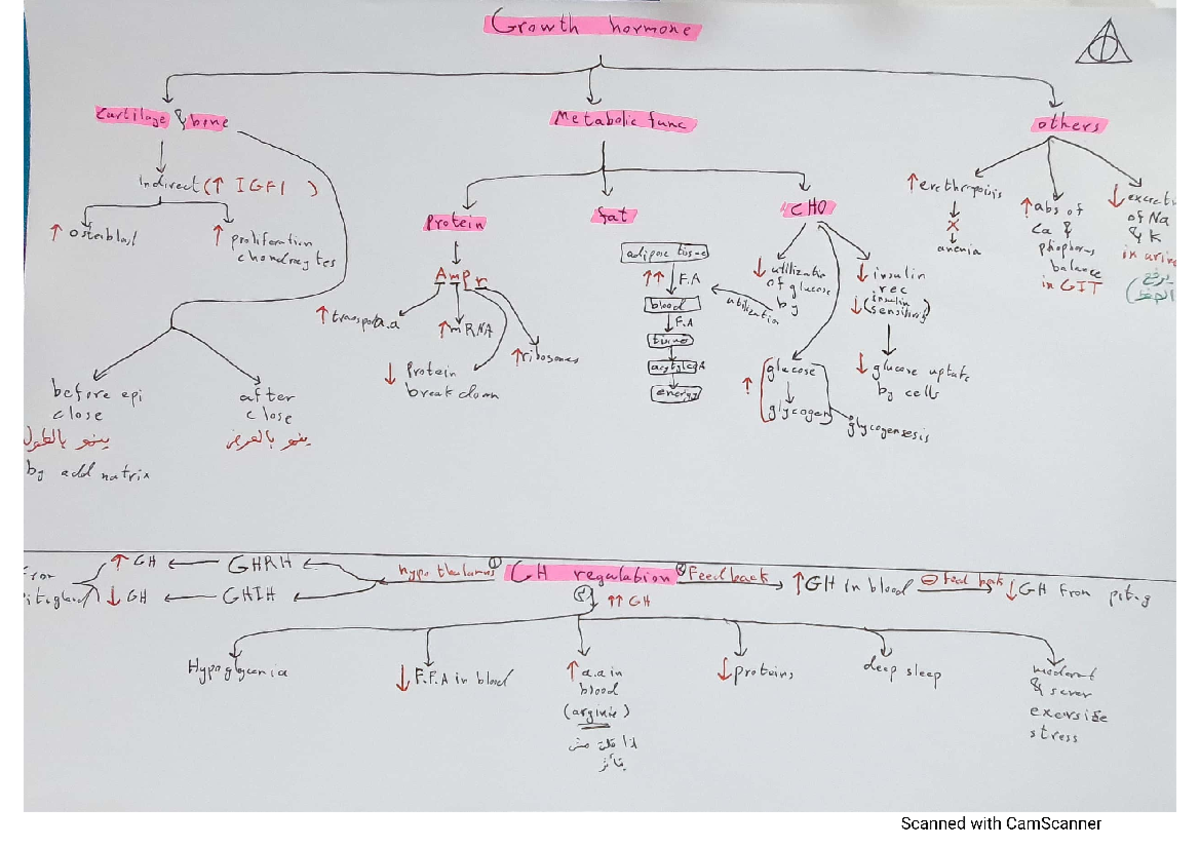 Growth hormone
Cartilage & bone
Metabolic func
others
Indirect (↑ IGF1 )
↑ osteblast
↑ proliferation
chondrocytes
before epi
close
ينمو بالطول
by add matrix
after
close
ينمو بالعرض
Protein
AmPr
↑ transport a.a
↑ mRNA
↓ Protein
break down
↑ ribosomes
fat
adipose tissue
↑↑ F.A
blood
↓ F.A
tissue
acetyl coA
energy
utilization
CHO
↓ utilization
of glucose
by
↓ insulin
rec
↓ (insulin
sensitivity)
↓ glucose uptake
by cells
↑ glucose
glycogen
glycogensesis
↑ erethropoisis
X
anemia
↑ abs of
Ca &
phosphorus
balance
in GIT
↓ excreti
of Na
& K
in urine
يرفع
(الضغط
GH regulation
① hypothalamus
GHRH
↑ GH
GHIH
↓ GH
from
pit.gland
② Feedback
↑ GH in blood
⊖ feed back
↓ GH from pit.g
③
↑↑ GH
Hypoglycemia
↓ F.F.A in blood
↑ a.a in
blood
(arginie)
↓ proteins
deep sleep
moderat
& sever
exersise
stress
Scanned with CamScanner